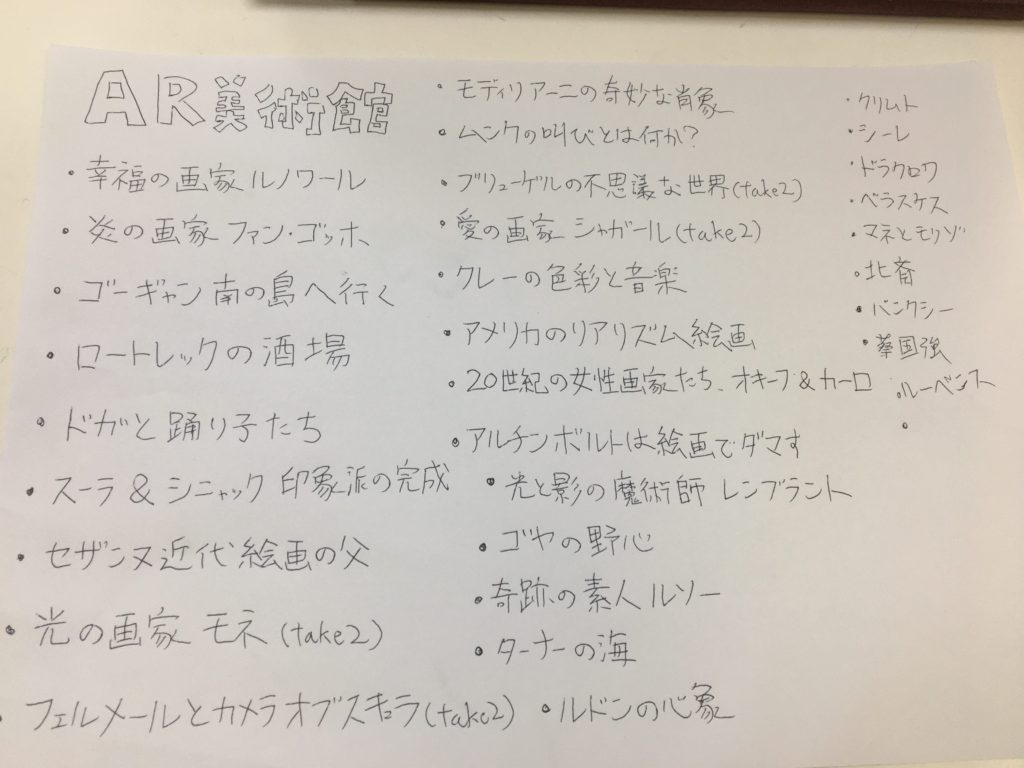 AR美術館
・幸福の画家 ルノワール
・炎の画家 ファン・ゴッホ
・ゴーギャン 南の島へ行く
・ロートレックの酒場
・ドガと踊り子たち
・スーラ & シニャック 印象派の完成
・セザンヌ 近代絵画の父
・光の画家 モネ (take2)
・フェルメールとカメラオブスキュラ(take2)
・モディリアーニの奇妙な肖象
・ムンクの叫びとは何か?
・ブリューゲルの不思議な世界(take2)
・愛の画家 シャガール(take2)
・クレーの色彩と音楽
・アメリカのリアリズム絵画
・20世紀の女性画家たち、オキーフ&カーロ
・アルチンボルトは絵画でダマす
・光と影の魔術師 レンブラント
・ゴヤの野心
・奇跡の素人 ルソー
・ターナーの海
・ルドンの心象
・クリムト
・シーレ
・ドラクロワ
・ベラスケス
・マネとモリゾ
・北斎
・バンクシー
・蔡国強
・ルーベンス
・